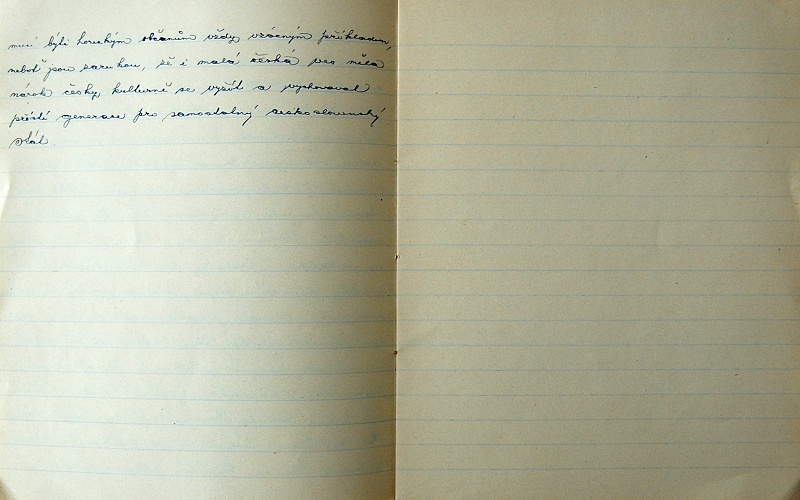 musí býti horským občanům vždy vzácným příkladem,
neboť jsou zárukou, že i malá česká ves měla
nárok česky kulturně se vyžít a vychovávat
příští generace pro samostatný československý
stát.